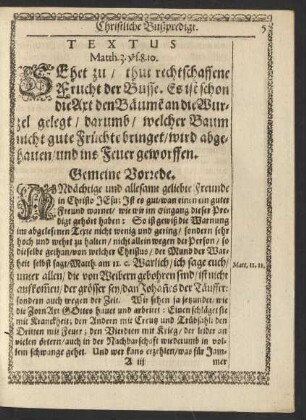 Christliche Bußpredigt.
5
TEXTUS
Matth. 3. vs. 8. 10.
SEhet zu / thut rechtschaffene
Frucht der Busse. Es ist schon
die Axt den Bäumē an die Wur-
zel gelegt / darumb / welcher Baum
nicht gute Früchte bringet / wird abge-
hauen / und ins Feuer geworffen.
Gemeine Vorrede.
ANdächtige und allesamt geliebte Freunde
in Christo JEsu: Ist es gut / wan einen ein guter
Freund warnet / wie wir im eingang dieser Pre-
digt gehört haben: So ist gewiß die Warnung
im abgelesenen Texte nicht wenig und gering / sondern sehr
hoch und wehrt zu halten / nicht allein wegen der Person / so
dieselbe gethan / von welcher Christus / der Mund der War-
heit selbst sagt / Matth. am 11. c. Warlich / ich sage euch /
unter allen / die von Weibern gebohren sind / ist nicht
aufkom̃en / der grösser sey / dan Johan̄es der Täuffer:
Matt. 11. 11.
sondern auch wegen der Zeit. Wir sehen ja jetzunder / wie
die Zorn Axt GOttes hauet und arbeitet: Einen schläget sie
mit Kranckheit; den Andern mit Creutz und Trübsahl; den
Dritten mit Feuer; den Vierdten mit Krieg / der leider an
vielen örtern / auch in der Nachbarschaft wiederumb in vol-
lem schwange gehet. Und wer kans erzehlen / was für Jam-
A iij
mer